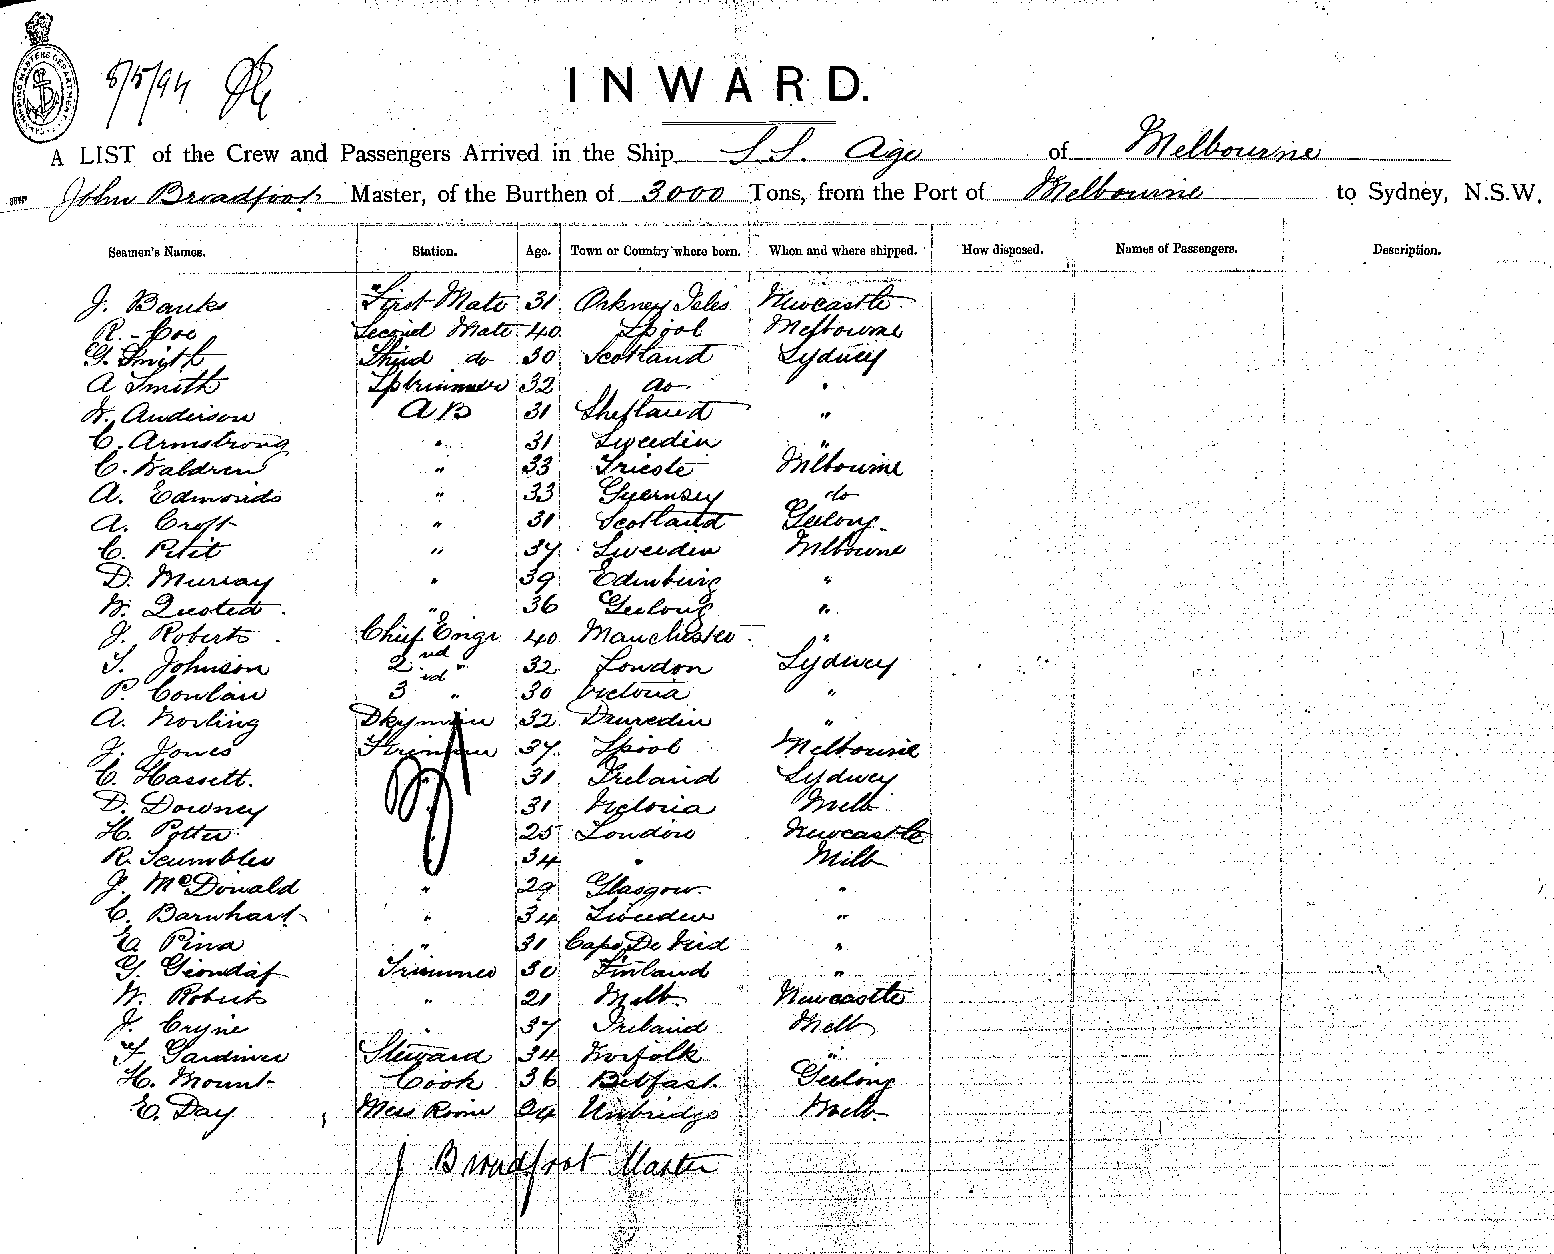 SHIPPING MASTERS DEPARTMENT
8/5/94
INWARD.
A LIST of the Crew and Passengers Arrived in the Ship S S. Age of Melbourne
John Broadfoot Master, of the Burthen of 3000 Tons, from the Port of Melbourne to Sydney, N.S.W.
Seamen's Names. Station. Age. Town or Country where born. When and where shipped. How disposed. Names of Passengers. Description.
J. Banks First Mate 31 Orkney Isles Newcastle
R. Coe Second Mate 40 Lpool Melbourne
G. Smith Third do 30 Scotland Sydney
A Smith 32 do "
W. Anderson A B 31 Shetland "
C. Armstrong " 31 Sweedin "
C. Waldren " 33 Trieste Melbourne
A. Edmonds " 33 Guernsey do
A. Croft " 31 Scotland Geelong
C. Petit " 37 Sweeden Melbourne
D. Murray " 39 Edinburg "
W. Quested " 36 Geelong "
J. Roberts Chief Engr 40 Manchester "
T. Johnson 2nd " 32 London Sydney
P. Conlan 3rd " 30 Victoria "
A. Norling Dkyman 32 Dunedin "
J. Jones Fireman 37 Lpool Melbourne
C. Hassett. " 31 Ireland Sydney
D. Downey " 31 Victoria Melb
H. Potter " 25 London Newcastle
R. Scumbler " 34 " Melb
J. McDonald " 29 Glasgow "
C. Barnhart " 34 Sweeden "
E. Pina " 31 Cape De Verd "
G. Trimmer 30 Finland "
W. Roberts " 21 Melb Newcastle
J. Cryne " 37 Ireland Melb
F. Gardiner Steward 34 Norfolk "
H. Mount Cook 36 Belfast Geelong
E. Day Mess Room 24 Uxbridge Melb
J Broadfoot Master